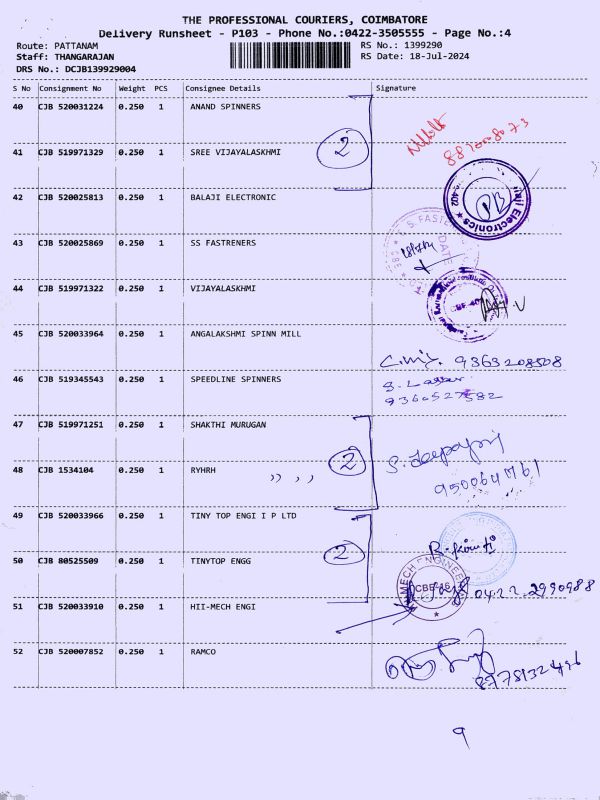 THE PROFESSIONAL COURIERS, COIMBATORE
Delivery Runsheet - P103 - Phone No.:0422-3505555 - Page No.:4
Route: PATTANAM RS No.: 1399290
Staff: THANGARAJAN RS Date: 18-Jul-2024
DRS No.: DCJB139929004
S No Consignment No Weight PCS Consignee Details Signature
40 CJB 520031224 0.250 1 ANAND SPINNERS
41 CJB 519971329 0.250 1 SREE VIJAYALASKHMI
2
42 CJB 520025813 0.250 1 BALAJI ELECTRONIC
Electronics
43 CJB 520025869 0.250 1 SS FASTRENERS
DATE
44 CJB 519971322 0.250 1 VIJAYALASKHMI
45 CJB 520033964 0.250 1 ANGALAKSHMI SPINN MILL
9363208508
46 CJB 519345543 0.250 1 SPEEDLINE SPINNERS
9360527582
47 CJB 519971251 0.250 1 SHAKTHI MURUGAN
48 CJB 1534104 0.250 1 RYHRH
2
49 CJB 520033966 0.250 1 TINY TOP ENGI I P LTD
50 CJB 80525509 0.250 1 TINYTOP ENGG
2
MECH ENGINEE
0422-2990988
51 CJB 520033910 0.250 1 HII-MECH ENGI
52 CJB 520007852 0.250 1 RAMCO
9